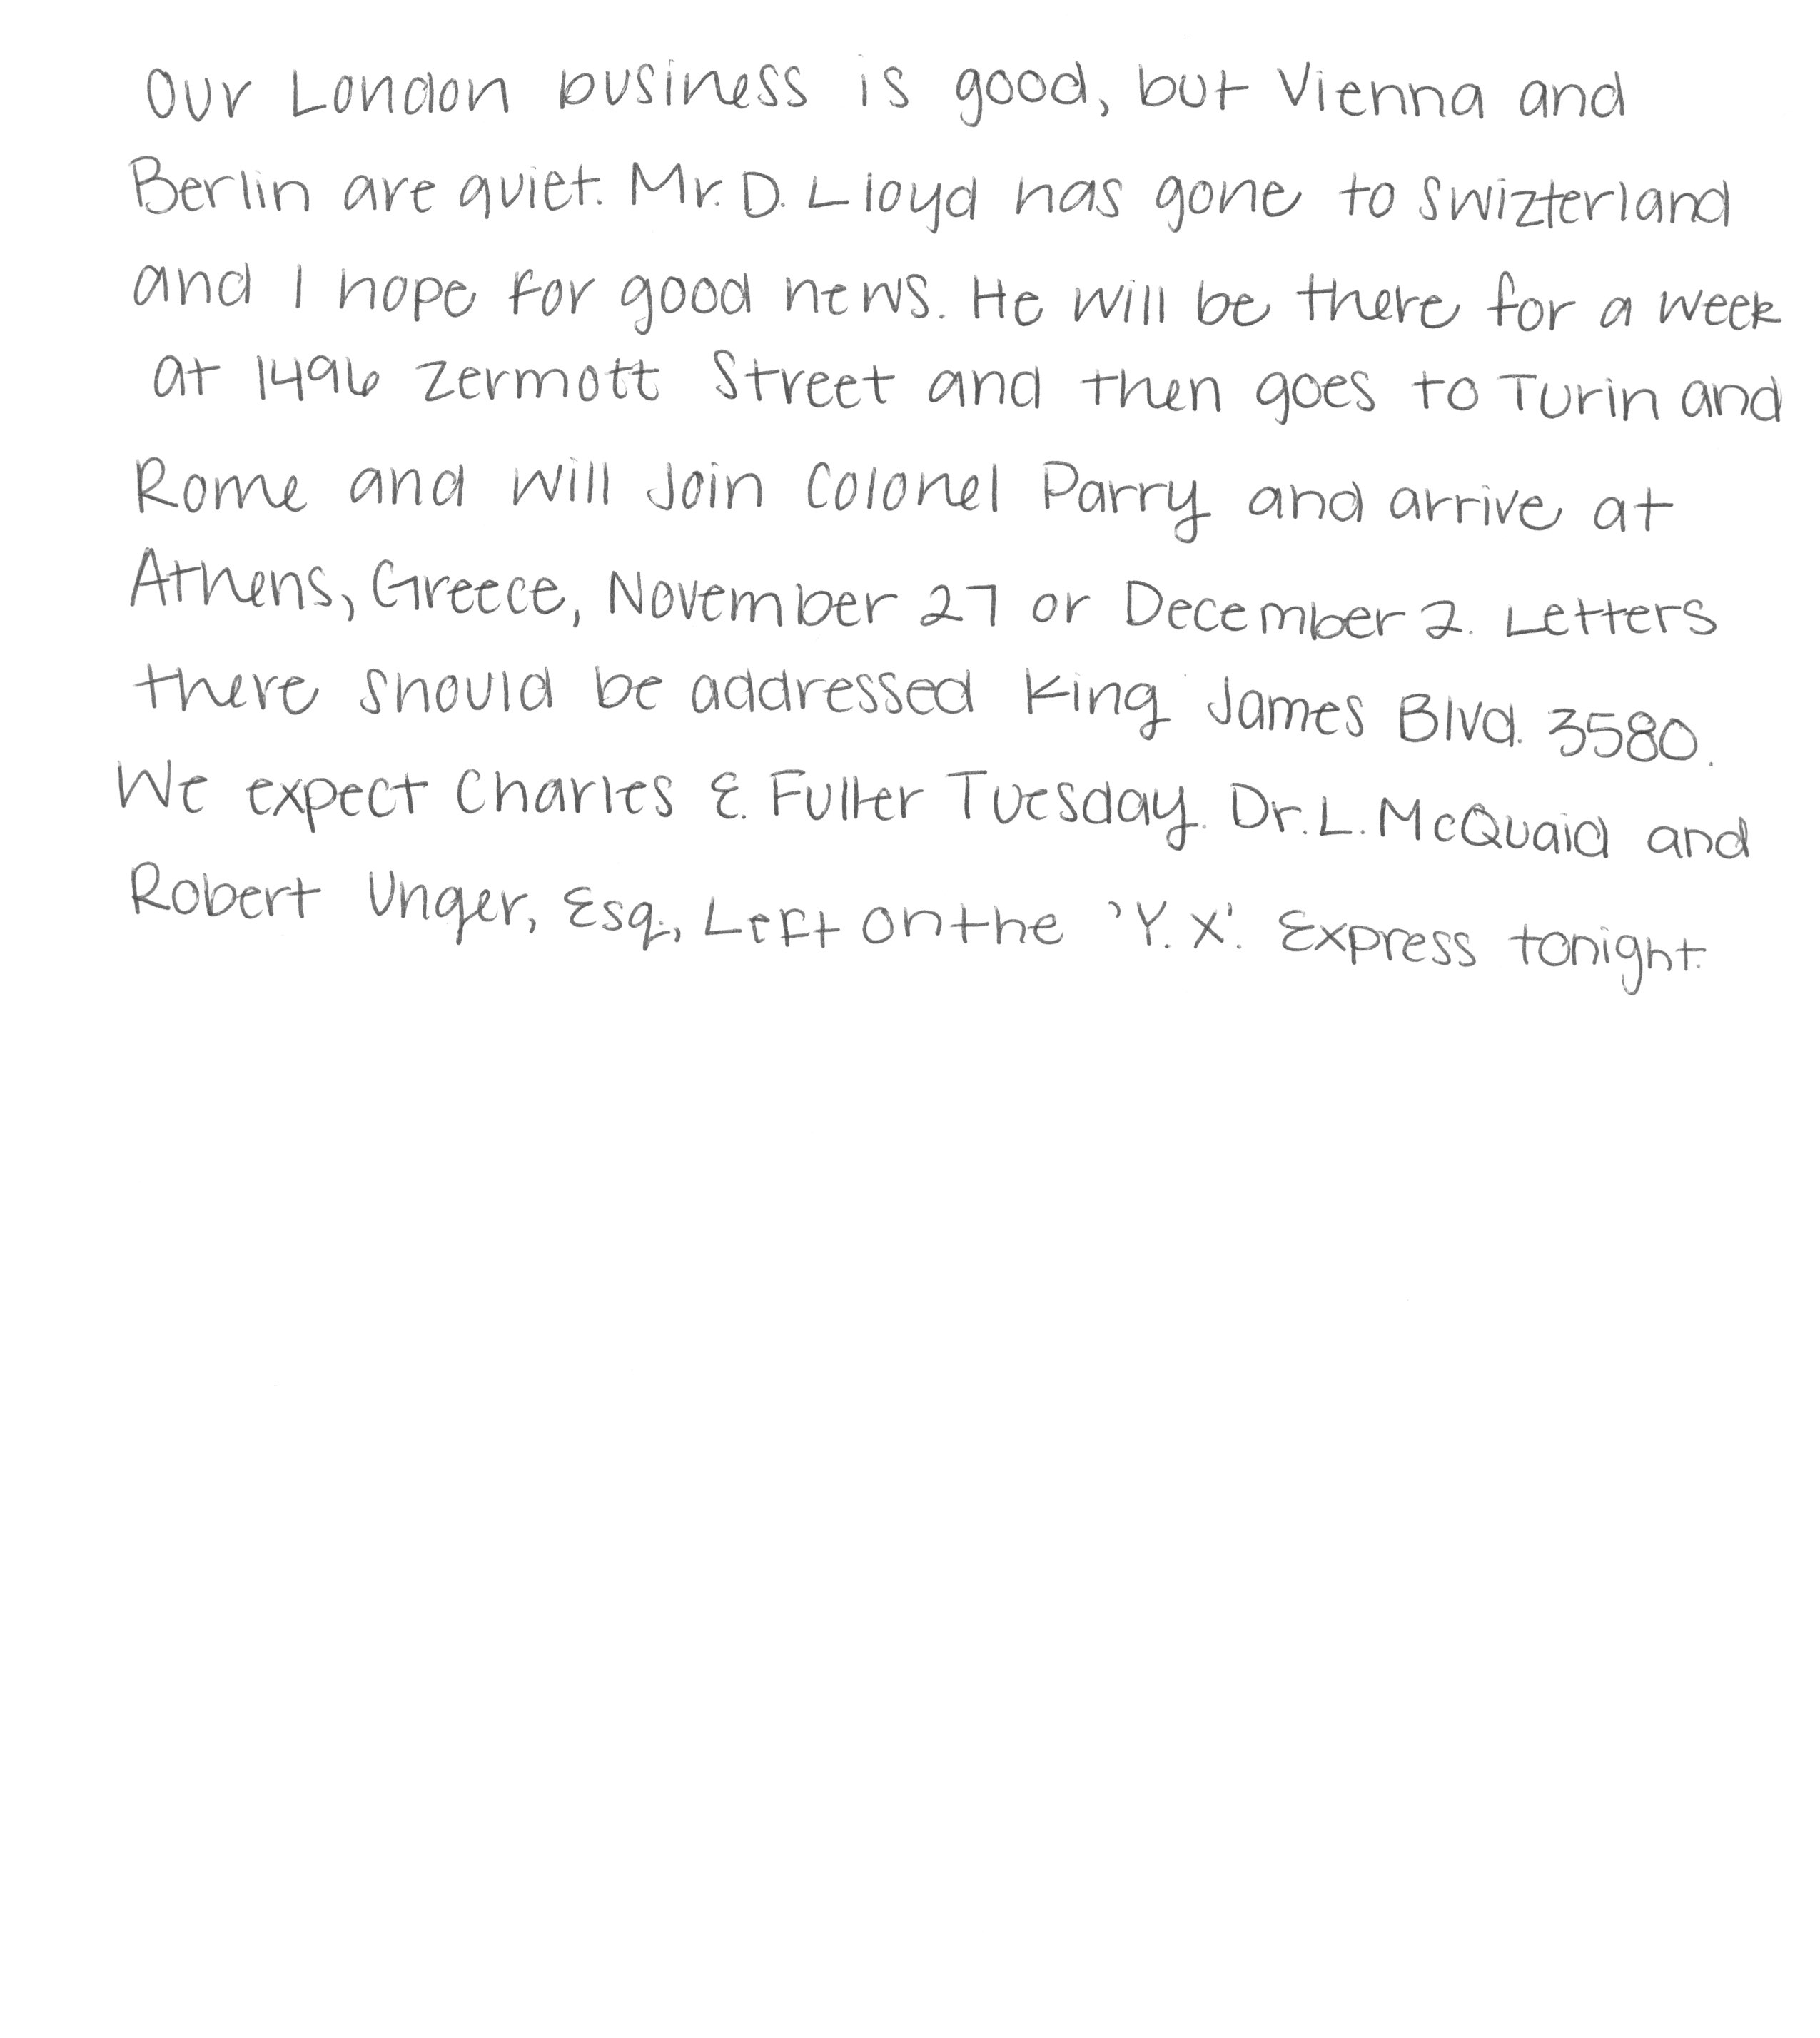 Our London business is good, but Vienna and
Berlin are quiet. Mr. D. Lloyd has gone to Swizterland
and I hope for good news. He will be there for a week
at 1496 Zermott Street and then goes to Turin and
Rome and will Join Colonel Parry and arrive at
Athens, Greece, November 27 or December 2. Letters
there should be addressed King James Blvd. 3580.
We expect Charles E. Fuller Tuesday. Dr. L. McQuaid and
Robert Unger, Esq., Left on the 'Y.X.' Express tonight.